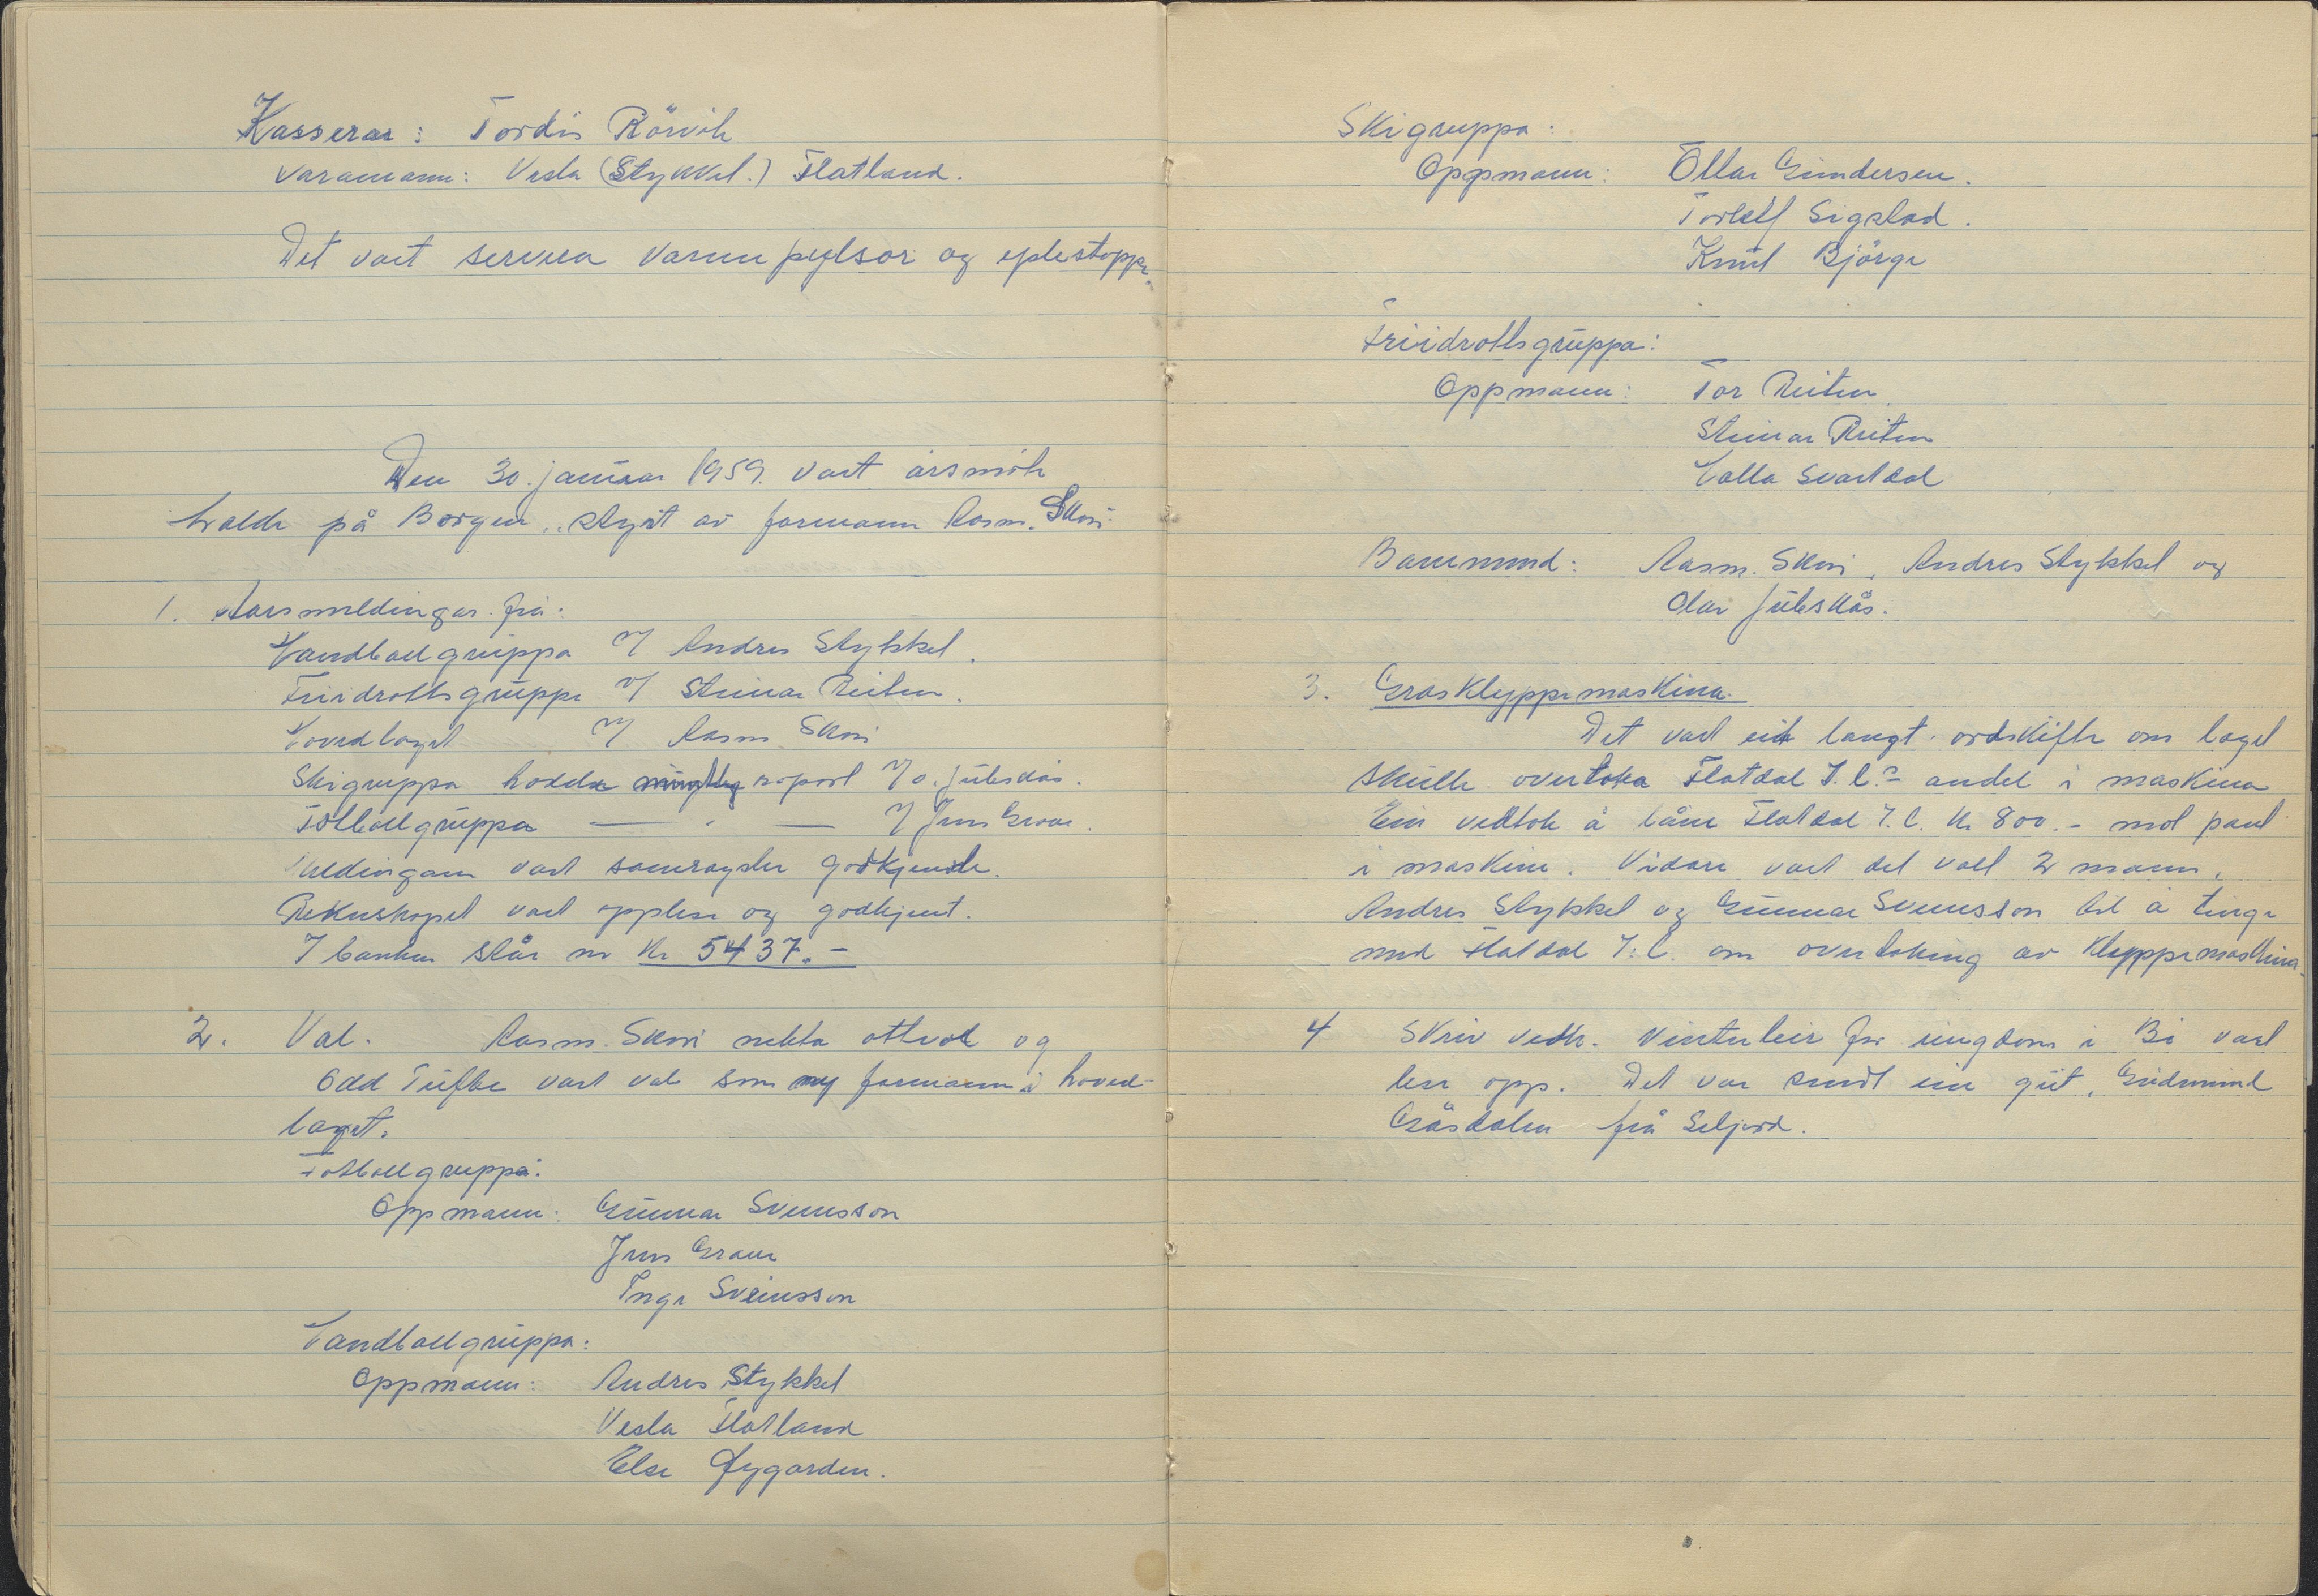 Kasserar: Tordis Rörvik
Varamann: Vesla (Stykkel.) Flatland.
Det vart servera varme pylsor og eplestoppe.
Den 30. januar 1959. vart årsmöte
halde på Borgen, styrt av formann Rasm. Skori.
1. Aarsmeldingar frå:
Handballgruppa v/ Andres Stykkel.
Friidrottsgruppe v/ Steinar Reiten.
Hovedlaget v/ Rasm Skori
Skigruppa hadde munleg raport v/ O. Juleskås.
Fotballgruppa — " — v/ Jens Grave.
Meldingane vart samrøystes godkjende.
Rekneskapet vart opplese og godkjent.
I banken står no Kr 5437.-
2. Val. Rasm. Skori nekta attval og
Odd Tufte vart val som ny formann i hoved-
laget.
Fotballgruppa:
Oppmann: Gunnar Sveinsson
Jens Grave
Inge Sveinsson
Handballgruppa:
Oppmann: Andres Stykkel
Vesla Flatland
Else Øygarden.
Skigruppa:
Oppmann: Ottar Gundersen.
Torleif Sigstad.
Knut Björge
Friidrottsgruppa:
Oppmann: Tor Reiten.
Steinar Reiten
Halla Svartdal
Banenemnd: Rasm. Skori, Andres Stykkel og
Olav Juleskås.
3. Grasklyppemaskina.
Det vart eit langt ordskifte om laget
skulle overtaka Flatdal I.L.s andel i maskina
Ein vedtok å låne Flatdal I.L. kr 800.- mot pant
i maskine. Vidare vart det valt 2 mann,
Andres Stykkel og Gunnar Sveinsson til å tinge
med Flatdal I.L. om overtaking av klyppemaskina.
4 Skriv vedk. vinterleir for ungdom i Bö vart
lese opp. Det var sendt ein gut, Gudmund
Gåsdalen frå Seljord.